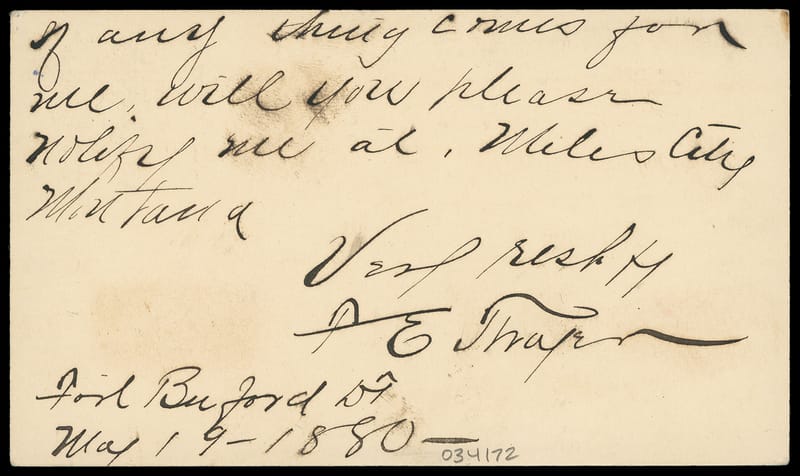 If any thing comes for
me, will you please
notify me at, Miles City
Montana
Very respt
F E Thayer
Fort Buford DT
May 19-1880
034172